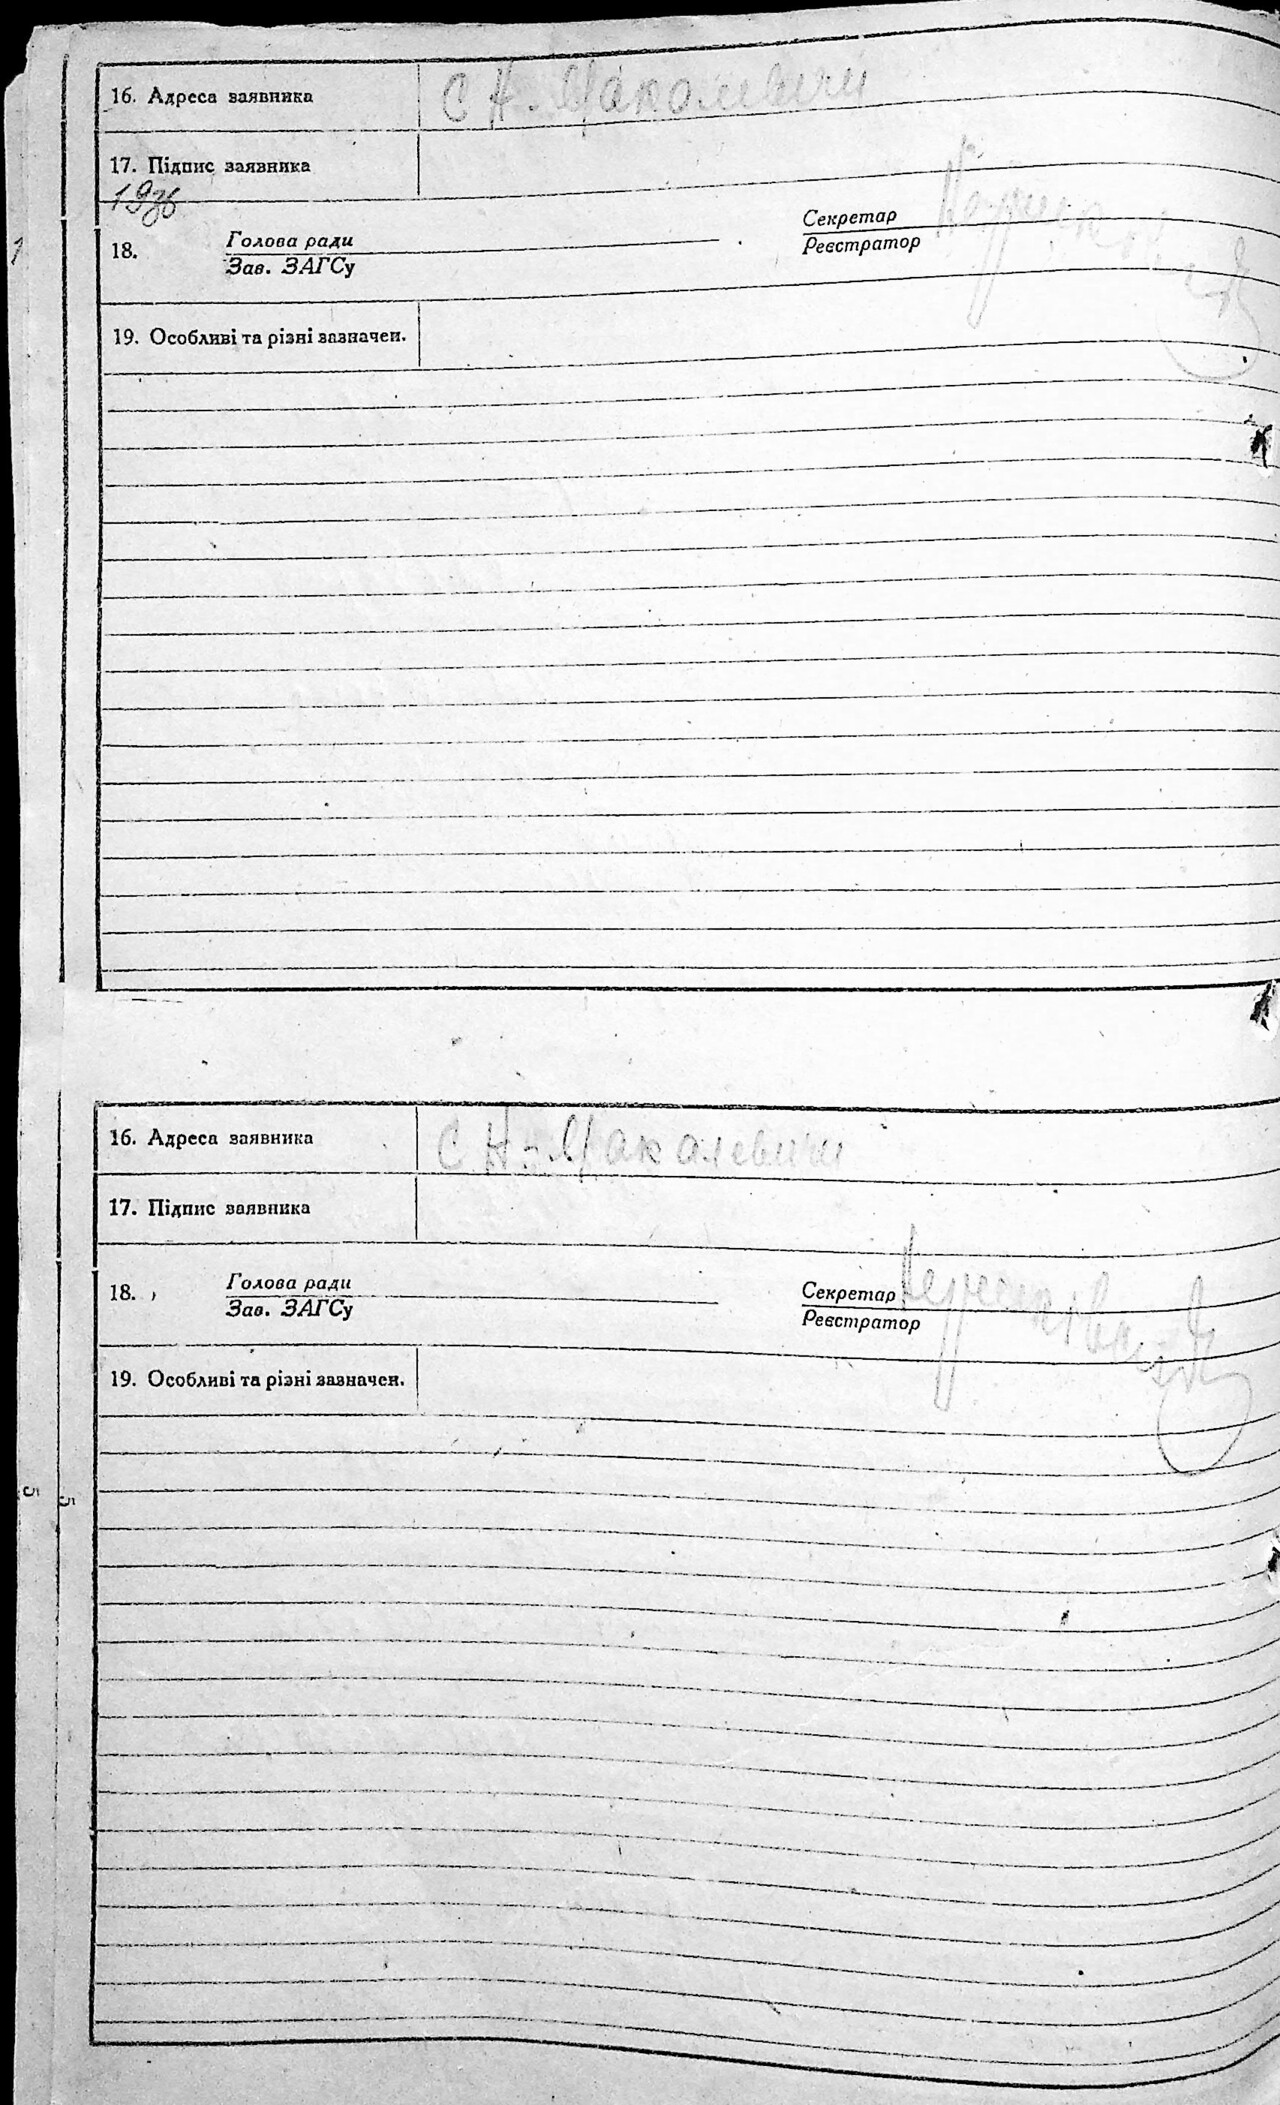 16. Адреса заявника С Н-Макалевичи
17. Підпис заявника
1936
18. Голова ради
Зав. ЗАГСу
Секретар
Реєстратор
19. Особливі та різні зазначен.
16. Адреса заявника С Н-Макалевичи
17. Підпис заявника
18. Голова ради
Зав. ЗАГСу
Секретар
Реєстратор
19. Особливі та різні зазначен.